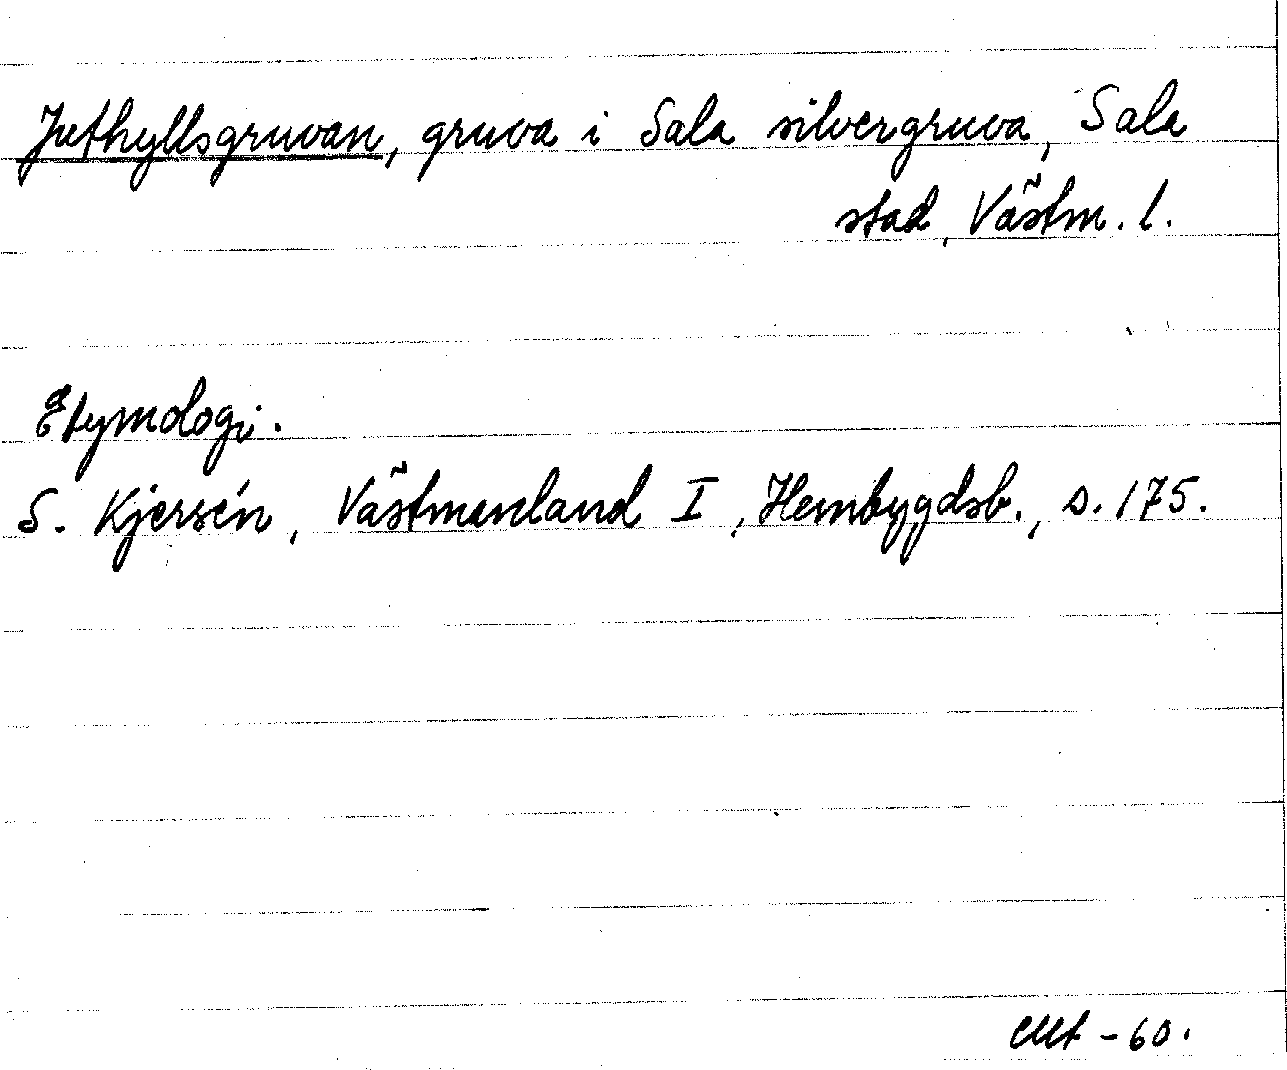 Juthyllsgruvan, gruva i Sala silvergruva, Sala
stad, Västm. l.
Etymologi.
S. Kjersén, Västmanland I, Hembygdsb., s. 175.
-60.